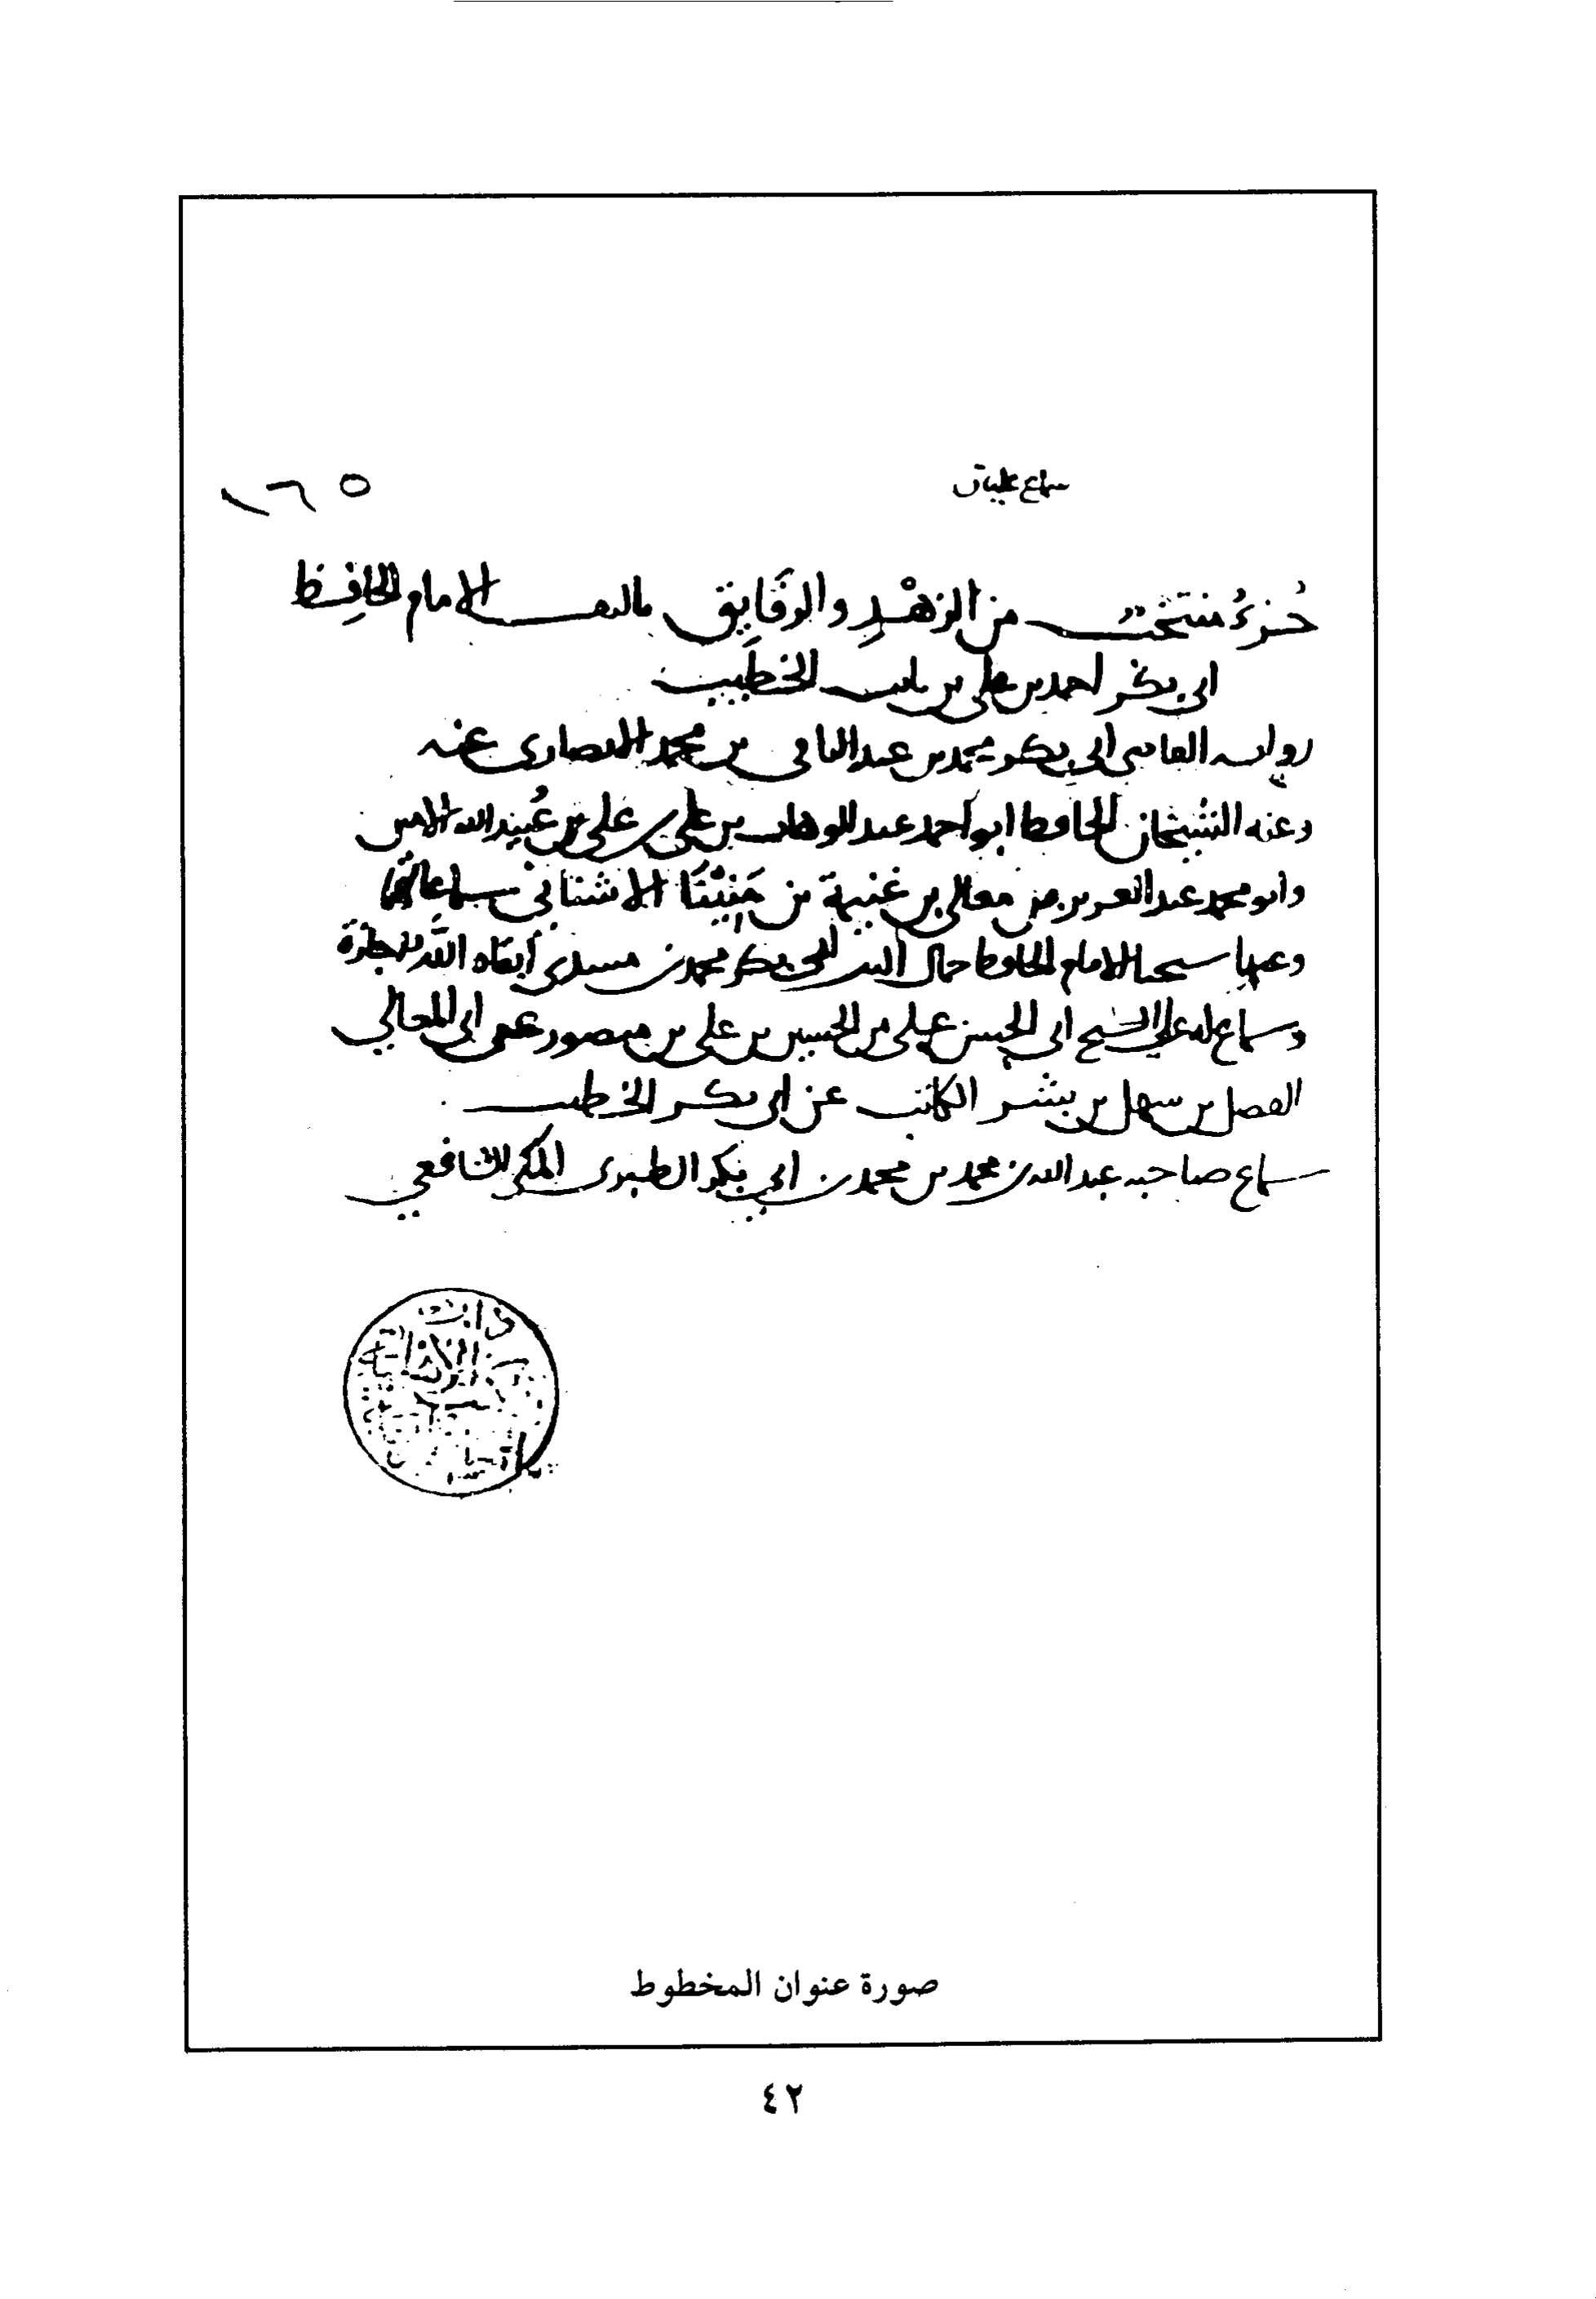 سماع عليان
١٦٥
جُزءُ منتخبٌ من الزهْدِ والرقَايق تاليف الامام الحافِظ
ابي بكر احمد بن علي بن ثابت الخطيب
رواية القاضي ابي بكر محمد بن عبد الباقي بن محمد الانصاري عنه
وعنه الشيخان الحافظ ابو احمد عبد الوهاب بن علي بن علي بن عُبيد الله الامين
وابو محمد عبد العزيز بن معالي بن غنيمة بن مَنِيْنَا الاشناني سماعا لهما
وعنهما شيخنا الامام الحافظ جمال الدين ابي بكر محمد بن مسدي ابقاه اللَّه اجازة
وسماع له علي الشيخ ابي الحسن علي بن الحسين بن علي بن منصور عن ابي المعالي
الفضل بن سهل بن بشر الكاتب عن ابي بكر الخطيب
سماع صاحبه عبد الله بن محمد بن محمد بن ابي بكر الطبري المكي الشافعي
صورة عنوان المخطوط
٤٢